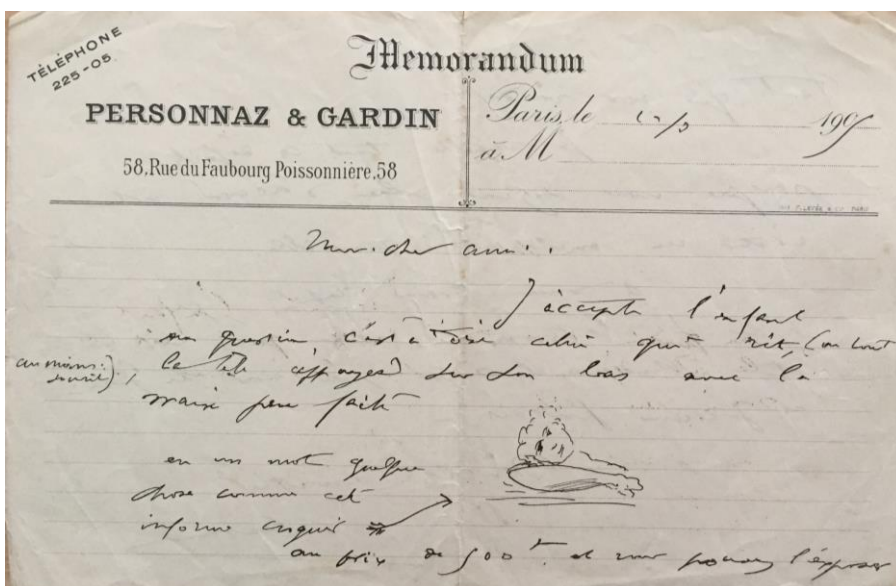 TÉLÉPHONE
225-05.
Memorandum
PERSONNAZ & GARDIN
58, Rue du Faubourg Poissonnière, 58
Paris, le 190
à M
Mon cher ami.
J'accepte l'enfant
en question, c'est à dire celui qui rit, (ou tout
au moins: sourit), la tête appuyée sur son bras avec la
main peu faite
en un mot quelque
chose comme cet
informe croquis
au prix de 500 f. et vous pouvez l'exposer